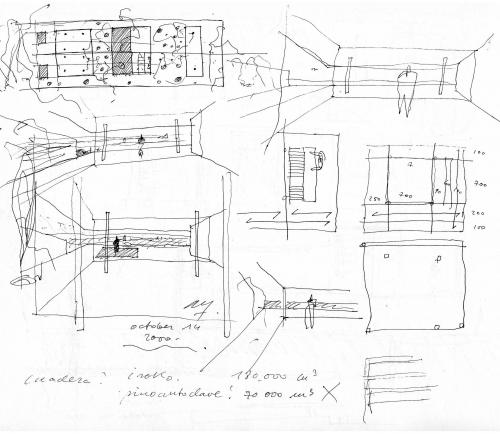 100
700
250 700
200
100
october 14
2000.
¿madera? iroko. 180,000 m³
pino autoclave? 70 000 m³ X